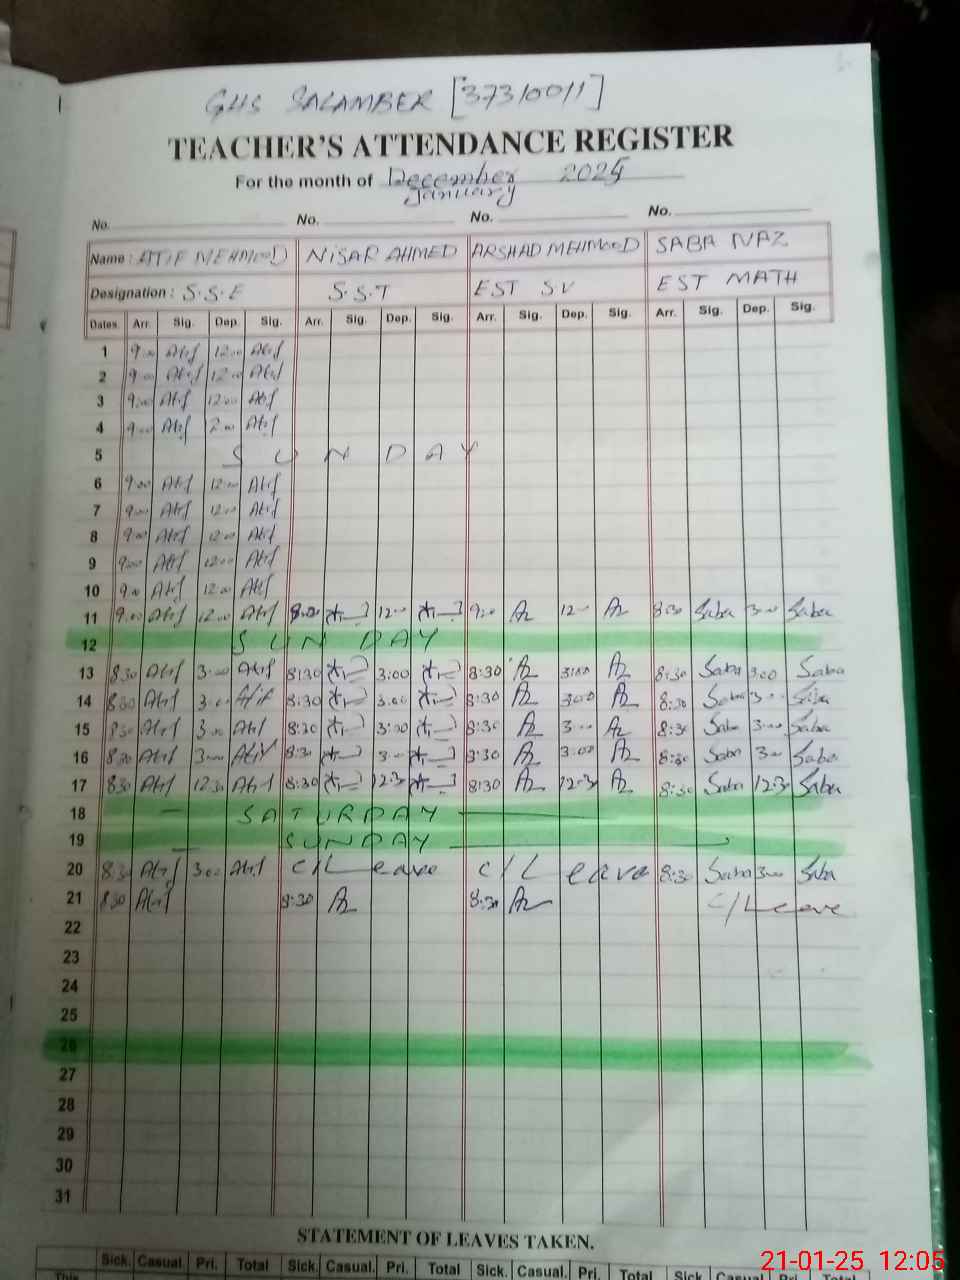 GHS SALAMBER [37310011]
TEACHER'S ATTENDANCE REGISTER
For the month of December 2025
January
No. No. No. No.
Name : ATIF MEHMOOD NISAR AHMED ARSHAD MEHMOOD SABA NAZ
Designation : S.S.E S.S.T EST SV EST MATH
Dates. Arr. Sig. Dep. Sig. Arr. Sig. Dep. Sig. Arr. Sig. Dep. Sig. Arr. Sig. Dep. Sig.
1 9:00 Atif 12:00 Atif
2 9:00 Atif 12:00 Atif
3 9:00 Atif 12:00 Atif
4 9:00 Atif 2:00 Atif
5 SUNDAY
6 9:00 Atif 12:00 Atif
7 9:00 Atif 12:00 Atif
8 9:00 Atif 12:00 Atif
9 9:00 Atif 12:00 Atif
10 9:00 Atif 12:00 Atif
11 9:00 Atif 12:00 Atif 8:30 12:00 9:00 12:00 8:30 Saba 3:00 Saba
12 SUNDAY
13 8:30 Atif 3:00 Atif 8:30 3:00 8:30 3:00 8:30 Saba 3:00 Saba
14 8:30 Atif 3:00 Atif 8:30 3:00 8:30 3:00 8:30 Saba 3:00 Saba
15 8:30 Atif 3:00 Atif 8:30 3:00 8:30 3:00 8:30 Saba 3:00 Saba
16 8:30 Atif 3:00 Atif 8:30 3:00 8:30 3:00 8:30 Saba 3:00 Saba
17 8:30 Atif 12:30 Atif 8:30 12:30 8:30 12:30 8:30 Saba 12:30 Saba
18 SATURDAY
19 SUNDAY
20 8:30 Atif 3:00 Atif C/Leave C/Leave 8:30 Saba 3:00 Saba
21 8:30 Atif 8:30 8:30 C/Leave
22
23
24
25
26
27
28
29
30
31
STATEMENT OF LEAVES TAKEN.
Sick. Casual. Pri. Total Sick. Casual. Pri. Total Sick. Casual. Pri. Total Sick Casual. Pri. Total
This
21-01-25 12:05